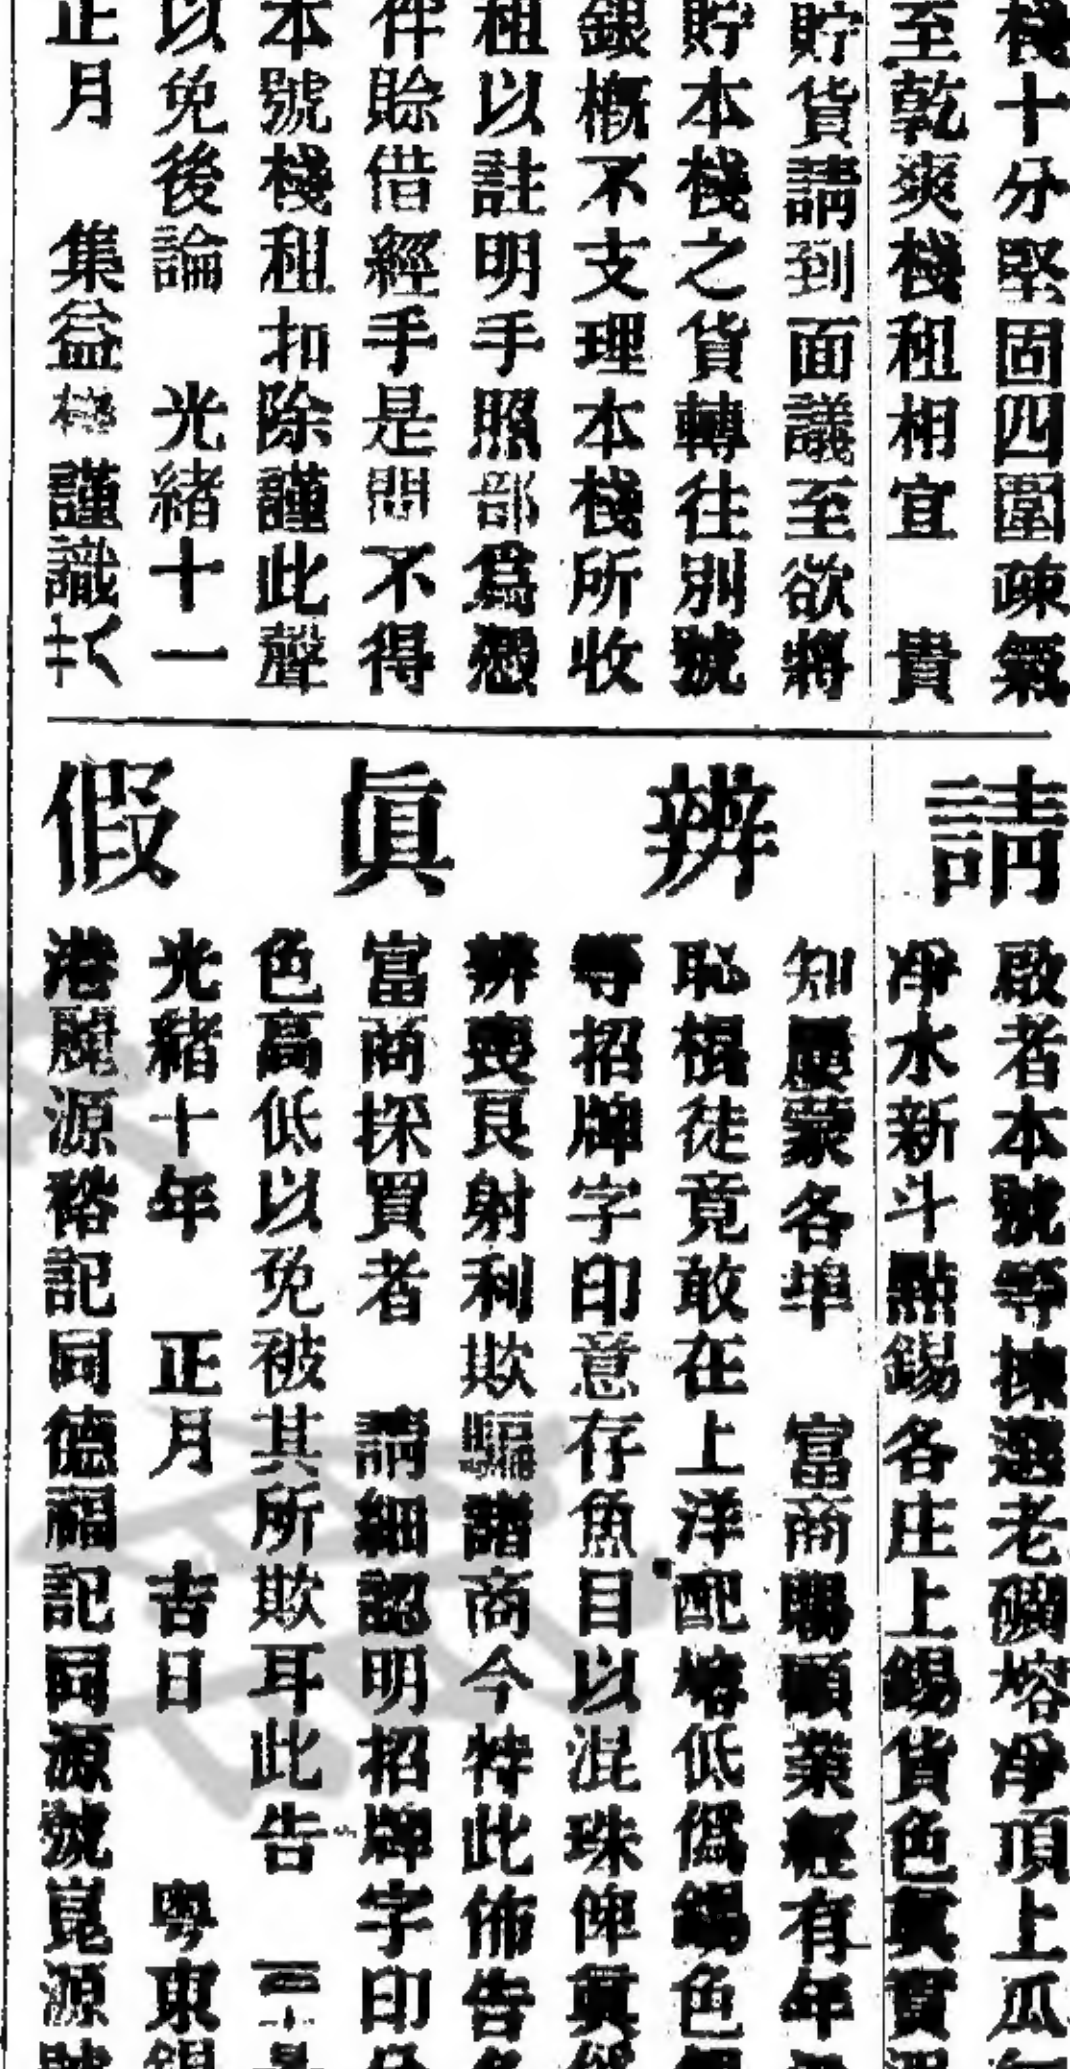 棧十分堅固四圍疎氣
至乾爽棧租相宜　貴
貯貨請到面議至欲將
貯本棧之貨轉往別號
銀概不支理本棧所收
租以註明手照部爲憑
伴賒借經手是問不得
本號棧租扣除謹此聲
以免後論　光緒十一
正月　集益棧謹識
請辨眞假
啟者本號等揀選老礦熔淨頂上瓜
淨水新斗點錫各庄上錫貨色眞實
知屢蒙各埠　富商賜顧業經有年
恥棍徒竟敢在上洋配熔低僞錫色
等招牌字印意存魚目以混珠俾眞
辨喪良射利欺騙諸商今特此佈告
富商採買者　請細認明招牌字印
色高低以免被其所欺耳此告
光緒十年　正月　吉日　粤東錫
港麗源裕記同德福記同源號嵩源號